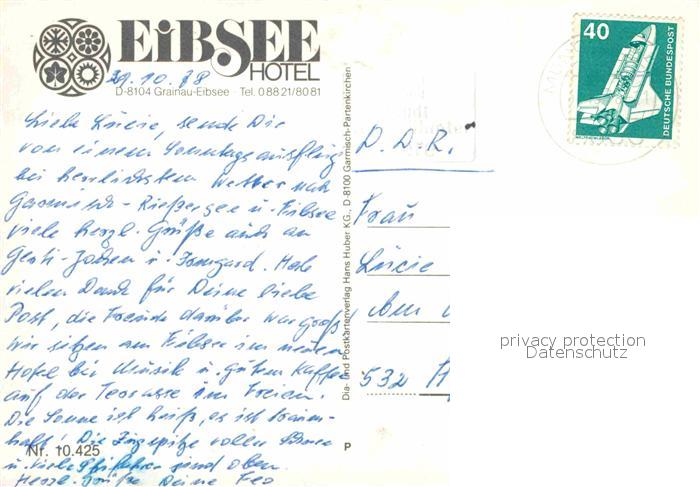 EiBSEE
HOTEL
29.10.78
D-8104 Grainau-Eibsee · Tel. 0 88 21/80 81
Liebe Lucie, sende Dir
von einem Sonntagsausflug
bei herrlichstem Wetter nach
Garmisch - Rießersee u. Eibsee
viele herzl. Grüße auch an
Gerti - Jochen u. Irmgard. Hab
vielen Dank für Deine liebe
Post, die Freude darüber war groß,
wir sitzen am Eibsee im neuen
Hotel bei Musik u. gutem Kaffee
auf der Terrasse im Freien.
Die Sonne ist heiß, es ist traum-
haft! Die Zugspitze voller Schnee
u. viele Skifahrer sind oben.
Herzl. Grüße Deine
Nr. 10.425
Dia- und Postkartenverlag Hans Huber KG., D-8100 Garmisch-Partenkirchen
P
40
DEUTSCHE BUNDESPOST
D.D.R.
Frau
Lucie
Am
532 H
privacy protection
Datenschutz